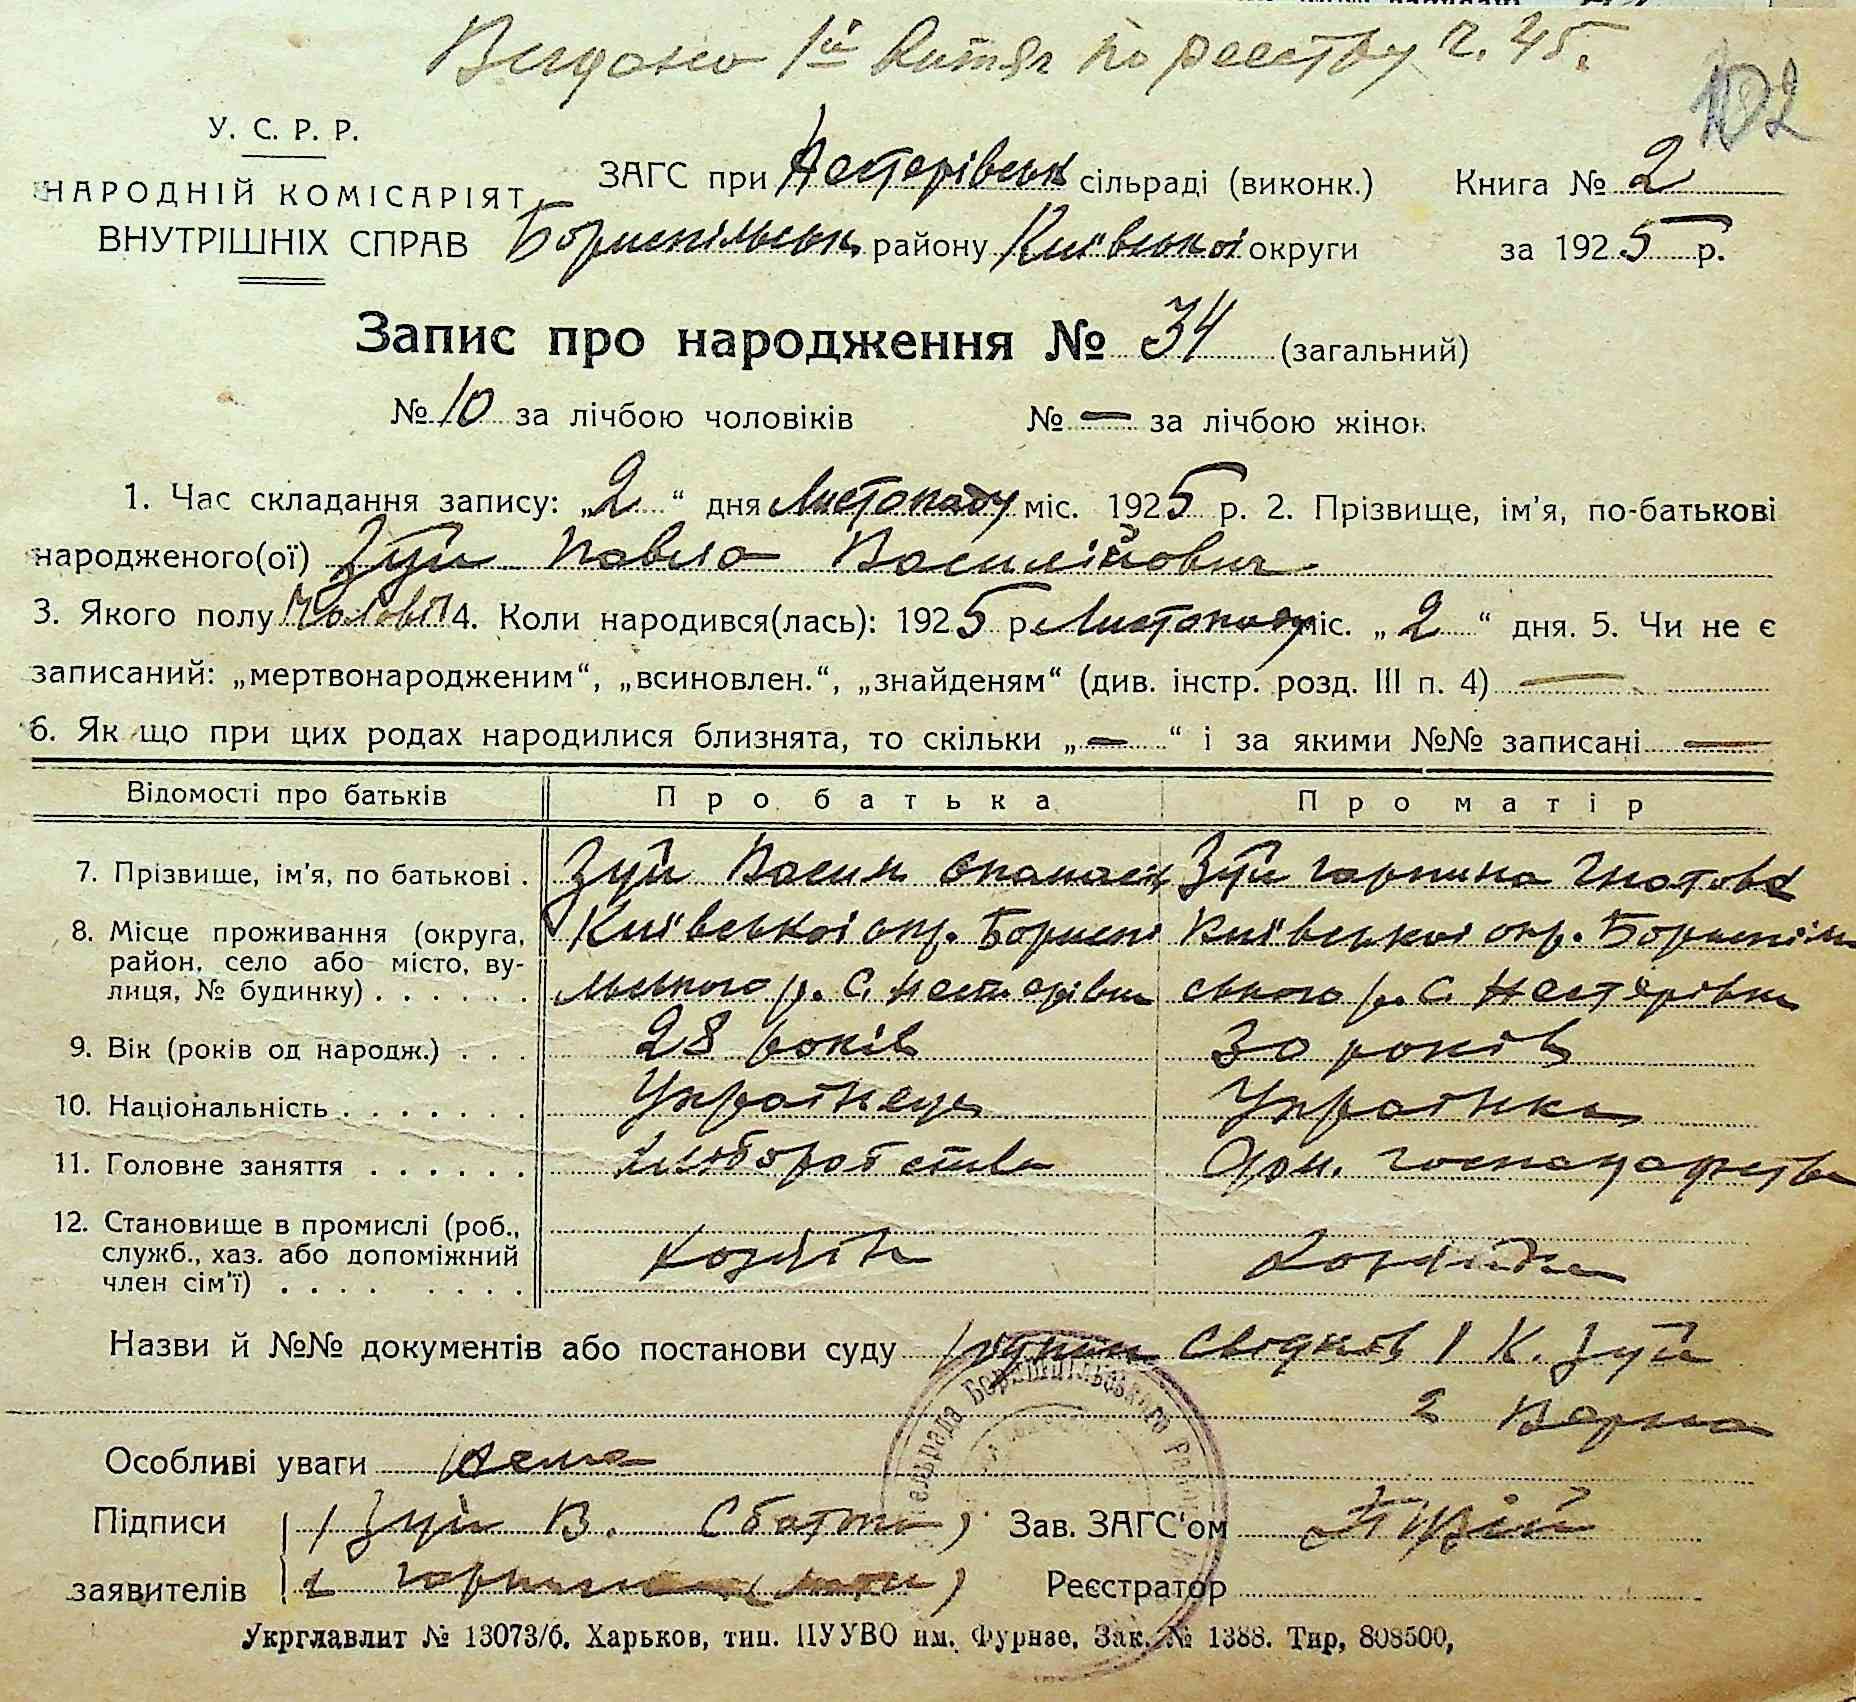 Видано 1й витяг по реєстру ч. 45.
102
У. С. Р. Р.
НАРОДНІЙ КОМІСАРІЯТ
ВНУТРІШНІХ СПРАВ
ЗАГС при Нестерівськ сільраді (виконк.) Книга № 2
Бориспільськ. району Київської округи за 1925 р.
Запис про народження № 34 (загальний)
№ 10 за лічбою чоловіків № — за лічбою жінок
1. Час складання запису: „2“ дня Листопаду міс. 1925 р. 2. Прізвище, ім'я, по-батькові
народженого(ої) Зуй Павло Василійович
3. Якого полу Чолові 4. Коли народився(лась): 1925 р. Листопаду міс. „2“ дня. 5. Чи не є
записаний: „мертвонародженим“, „всиновлен.“, „знайденям“ (див. інстр. розд. III п. 4) —
6. Як що при цих родах народилися близнята, то скільки „—“ і за якими №№ записані —
Відомості про батьків Про батька Про матір
7. Прізвище, ім'я, по батькові . Зуй Васил Опанаси Зуй Горпина Гнатова
8. Місце проживання (округа, район, село або місто, вулиця, № будинку) . . . . . .
Київської окр. Бориспі
льського р. С. Нестерівки
Київської окр. Бориспіль
ського р. С. Нестерівки
9. Вік (років од народж.) . . . 28 років 30 років
10. Національність . . . . . . . Українець Українка
11. Головне заняття . . . . . . Хліборобство Дом. господарство
12. Становище в промислі (роб.,
служб., хаз. або допоміжний
член сім'ї) . . . . . . . .
Хозяїн Хозяйка
Назви й №№ документів або постанови суду свідків 1 К. Зуй
2
Особливі уваги Нема
Підписи 1 Зуй В. (батько) Зав. ЗАГС'ом
заявителів 2 Горпина (мати) Реєстратор
Укрглавлит № 13073/б. Харьков, тип. ПУУВО им. Фрунзе. Зак. № 1388. Тир, 808500,